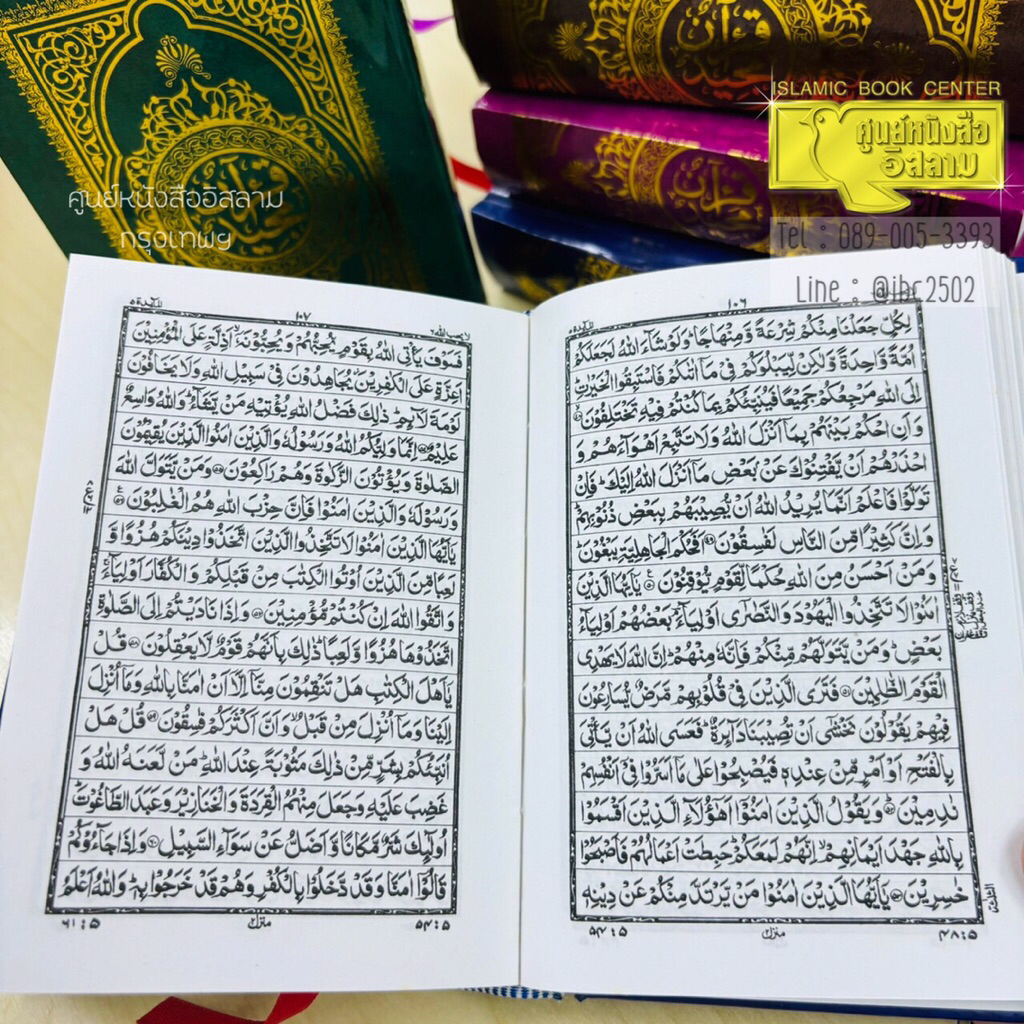 ISLAMIC BOOK CENTER
ศูนย์หนังสือ
อิสลาม
Tel : 089-005-3393
Line : @ibc2502
ศูนย์หนังสืออิสลาม
กรุงเทพฯ
قرآن
مجيد
١٠٦
لِكُلٍّ جَعَلْنَا مِنْكُمْ شِرْعَةً وَّمِنْهَاجًا ؕ وَلَوْ شَآءَ اللّٰهُ لَجَعَلَكُمْ
اُمَّةً وَّاحِدَةً وَّلٰكِنْ لِّيَبْلُوَكُمْ فِيْ مَاۤ اٰتٰىكُمْ فَاسْتَبِقُوا الْخَيْرٰتِ ؕ
اِلَى اللّٰهِ مَرْجِعُكُمْ جَمِيْعًا فَيُنَبِّئُكُمْ بِمَا كُنْتُمْ فِيْهِ تَخْتَلِفُوْنَ ۙ
وَاَنِ احْكُمْ بَيْنَهُمْ بِمَاۤ اَنْزَلَ اللّٰهُ وَلَا تَتَّبِعْ اَهْوَآءَهُمْ وَ
احْذَرْهُمْ اَنْ يَّفْتِنُوْكَ عَنْۢ بَعْضِ مَاۤ اَنْزَلَ اللّٰهُ اِلَيْكَ ؕ فَاِنْ
تَوَلَّوْا فَاعْلَمْ اَنَّمَا يُرِيْدُ اللّٰهُ اَنْ يُّصِيْبَهُمْ بِبَعْضِ ذُنُوْبِهِمْ ؕ
وَاِنَّ كَثِيْرًا مِّنَ النَّاسِ لَفٰسِقُوْنَ ۝۴۹ اَفَحُكْمَ الْجَاهِلِيَّةِ يَبْغُوْنَ ؕ
وَمَنْ اَحْسَنُ مِنَ اللّٰهِ حُكْمًا لِّقَوْمٍ يُّوْقِنُوْنَ ۝ يٰۤاَيُّهَا الَّذِيْنَ
اٰمَنُوْا لَا تَتَّخِذُوا الْيَهُوْدَ وَالنَّصٰرٰۤى اَوْلِيَآءَ ؔ بَعْضُهُمْ اَوْلِيَآءُ
بَعْضٍ ؕ وَمَنْ يَّتَوَلَّهُمْ مِّنْكُمْ فَاِنَّهٗ مِنْهُمْ ؕ اِنَّ اللّٰهَ لَا يَهْدِي
الْقَوْمَ الظّٰلِمِيْنَ ۝۵۱ فَتَرَى الَّذِيْنَ فِيْ قُلُوْبِهِمْ مَّرَضٌ يُّسَارِعُوْنَ
فِيْهِمْ يَقُوْلُوْنَ نَخْشٰۤى اَنْ تُصِيْبَنَا دَآئِرَةٌ ؕ فَعَسَى اللّٰهُ اَنْ يَّاْتِيَ
بِالْفَتْحِ اَوْ اَمْرٍ مِّنْ عِنْدِهٖ فَيُصْبِحُوْا عَلٰى مَاۤ اَسَرُّوْا فِيْۤ اَنْفُسِهِمْ
نٰدِمِيْنَ ۝۵۲ وَيَقُوْلُ الَّذِيْنَ اٰمَنُوْۤا اَهٰۤؤُلَآءِ الَّذِيْنَ اَقْسَمُوْا
بِاللّٰهِ جَهْدَ اَيْمَانِهِمْ ۙ اِنَّهُمْ لَمَعَكُمْ ؕ حَبِطَتْ اَعْمَالُهُمْ فَاَصْبَحُوْا
خٰسِرِيْنَ ۝۵۳ يٰۤاَيُّهَا الَّذِيْنَ اٰمَنُوْا مَنْ يَّرْتَدَّ مِنْكُمْ عَنْ دِيْنِهٖ
۴۸:۵ منزل۲ ۵۴:۵
لا يحب الله ٦ ١٠٧ المآئدة ۵
فَسَوْفَ يَاْتِي اللّٰهُ بِقَوْمٍ يُّحِبُّهُمْ وَيُحِبُّوْنَهٗۤ ۙ اَذِلَّةٍ عَلَى الْمُؤْمِنِيْنَ
اَعِزَّةٍ عَلَى الْكٰفِرِيْنَ ؗ يُجَاهِدُوْنَ فِيْ سَبِيْلِ اللّٰهِ وَلَا يَخَافُوْنَ
لَوْمَةَ لَآئِمٍ ؕ ذٰلِكَ فَضْلُ اللّٰهِ يُؤْتِيْهِ مَنْ يَّشَآءُ ؕ وَاللّٰهُ وَاسِعٌ
عَلِيْمٌ ۝۵۴ اِنَّمَا وَلِيُّكُمُ اللّٰهُ وَرَسُوْلُهٗ وَالَّذِيْنَ اٰمَنُوا الَّذِيْنَ يُقِيْمُوْنَ
الصَّلٰوةَ وَيُؤْتُوْنَ الزَّكٰوةَ وَهُمْ رٰكِعُوْنَ ۝۵۵ وَمَنْ يَّتَوَلَّ اللّٰهَ
وَرَسُوْلَهٗ وَالَّذِيْنَ اٰمَنُوْا فَاِنَّ حِزْبَ اللّٰهِ هُمُ الْغٰلِبُوْنَ ۝۵۶
يٰۤاَيُّهَا الَّذِيْنَ اٰمَنُوْا لَا تَتَّخِذُوا الَّذِيْنَ اتَّخَذُوْا دِيْنَكُمْ هُزُوًا وَّ
لَعِبًا مِّنَ الَّذِيْنَ اُوْتُوا الْكِتٰبَ مِنْ قَبْلِكُمْ وَالْكُفَّارَ اَوْلِيَآءَ ۚ
وَاتَّقُوا اللّٰهَ اِنْ كُنْتُمْ مُّؤْمِنِيْنَ ۝۵۷ وَاِذَا نَادَيْتُمْ اِلَى الصَّلٰوةِ
اتَّخَذُوْهَا هُزُوًا وَّلَعِبًا ؕ ذٰلِكَ بِاَنَّهُمْ قَوْمٌ لَّا يَعْقِلُوْنَ ۝۵۸ قُلْ
يٰۤاَهْلَ الْكِتٰبِ هَلْ تَنْقِمُوْنَ مِنَّاۤ اِلَّاۤ اَنْ اٰمَنَّا بِاللّٰهِ وَمَاۤ اُنْزِلَ
اِلَيْنَا وَمَاۤ اُنْزِلَ مِنْ قَبْلُ ۙ وَاَنَّ اَكْثَرَكُمْ فٰسِقُوْنَ ۝۵۹ قُلْ هَلْ
اُنَبِّئُكُمْ بِشَرٍّ مِّنْ ذٰلِكَ مَثُوْبَةً عِنْدَ اللّٰهِ ؕ مَنْ لَّعَنَهُ اللّٰهُ وَ
غَضِبَ عَلَيْهِ وَجَعَلَ مِنْهُمُ الْقِرَدَةَ وَالْخَنَازِيْرَ وَعَبَدَ الطَّاغُوْتَ ؕ
اُولٰٓئِكَ شَرٌّ مَّكَانًا وَّاَضَلُّ عَنْ سَوَآءِ السَّبِيْلِ ۝۶۰ وَاِذَا جَآءُوْكُمْ
قَالُوْۤا اٰمَنَّا وَقَدْ دَّخَلُوْا بِالْكُفْرِ وَهُمْ قَدْ خَرَجُوْا بِهٖ ؕ وَاللّٰهُ اَعْلَمُ
۵۴:۵ منزل۲ ۶۱:۵